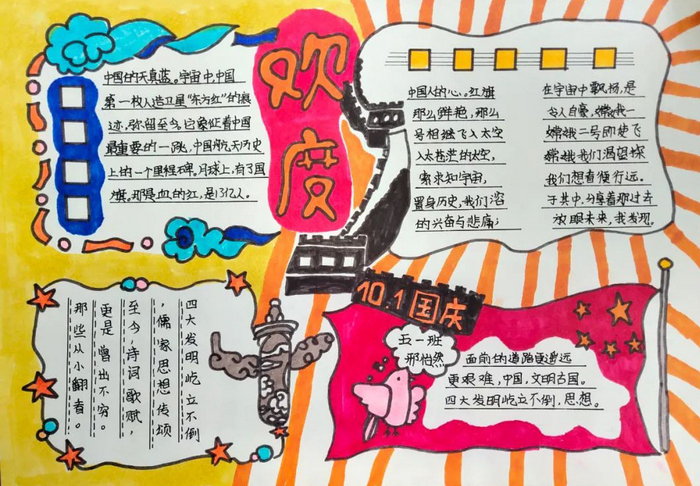 欢度
中国的天真蓝。宇宙中,中国
第一枚人造卫星“东方红”的痕
迹,弥留至今。它象征着中国
最重要的一跳,中国航天历史
上的一个里程碑。月球上,有了国
旗,那是血的红,是13亿人。
中国人的心。红旗
那么鲜艳,那么
号相继飞入太空
入太苍茫的太空,
索求知宇宙,
置身历史,我们
的兴奋与悲痛;
在宇宙中飘扬,是
令人自豪,嫦娥一
嫦娥二号即使飞
嫦娥我们渴望探
我们想看得行远。
于其中,分享着那过去
放眼未来,我发现,
四大发明屹立不倒
,儒家思想传颂
至今,诗词歌赋,
更是层出不穷。
那些从小翻着。
10.1国庆
五一班
邢怡然
面前的道路更遥远
更艰难,中国,文明古国。
四大发明屹立不倒,思想。